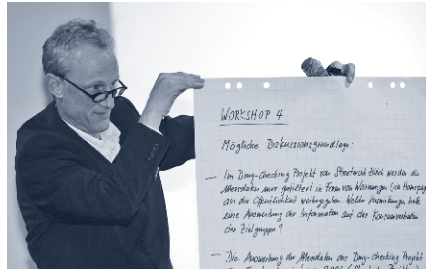 WORKSHOP 4
Mögliche Diskussionsgrundlage:
— Im Drug-checking Projekt von Streetwork Zürich werden die
Messdaten nur gefiltert in Form von Warnungen (via Homepage)
an die Öffentlichkeit weitergegeben. Welche Auswirkungen hätte
eine Auswertung der Information auf das Konsumverhalten
der Zielgruppen?
— Die Auswertung der Messdaten des Drug-checking Projekt